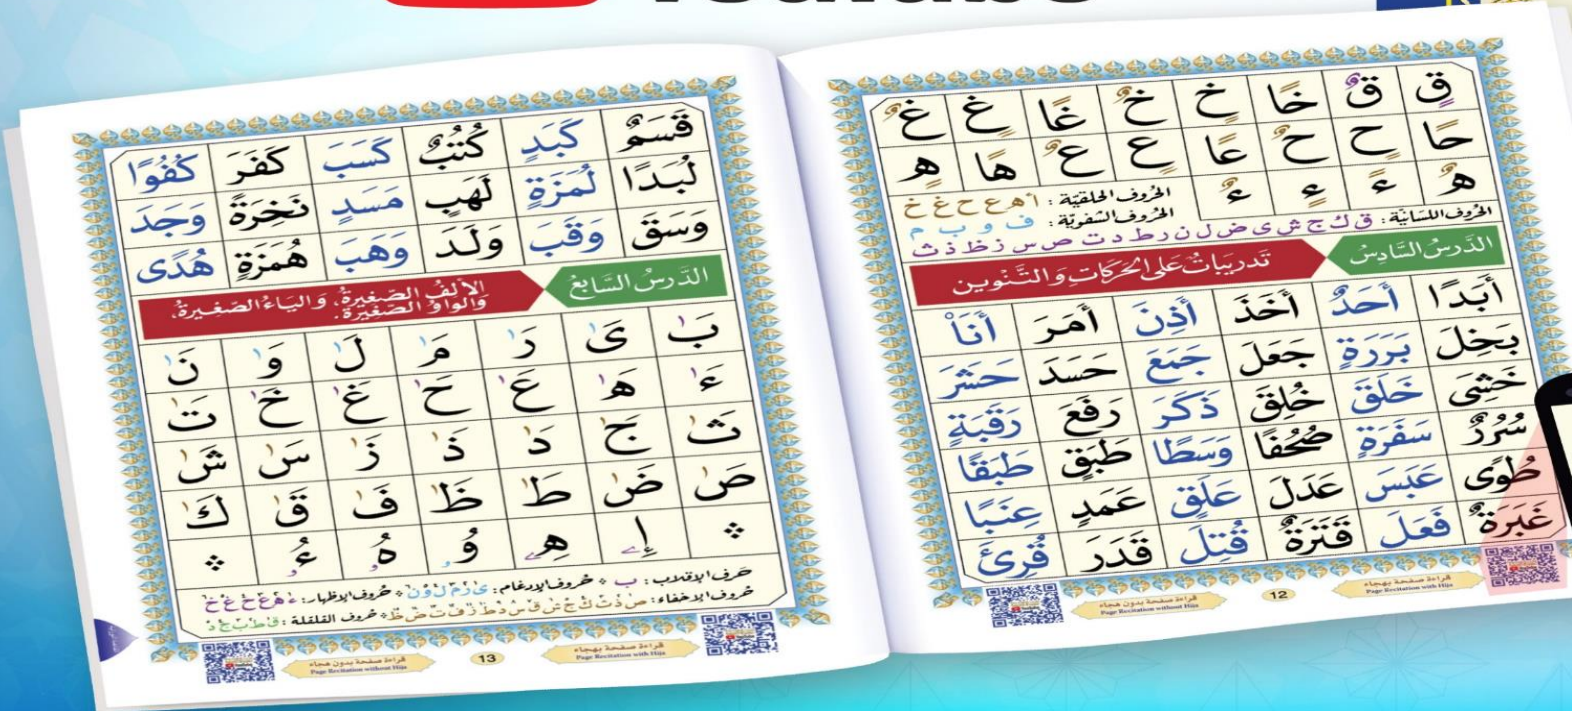 قٍ قٌ خًا خٍ خٌ غًا غٍ غٌ
حًا حٍ حٌ عًا عٍ عٌ هًا هٍ
هٌ ءً ءٍ ءٌ
الحُروف الحلقيّة : أ ه ع ح غ خ
الحُروف الشفويّة : ف و ب م
الحُروف اللسَانيَّة : ق ك ج ش ى ض ل ن ر ط د ت ص س ز ظ ذ ث
الدَّرسُ السَّادِسُ
تَدريبَاتٌ عَلى الحَركَاتِ وَالتَّنْوين
أَبَدًا أَحَدٌ أَخَذَ أَذِنَ أَمَرَ أَنَا۠
بَخِلَ بَرَرَةٍ جَعَلَ جَمَعَ حَسَدَ حَشَرَ
خَشِىَ خَلَقَ خُلِقَ ذَكَرَ رَفَعَ رَقَبَةٍ
سُرُرٌ سَفَرَةٍ صُحُفًا وَسَطًا طَبَقٍ طَبَقًا
طُوًى عَبَسَ عَدَلَ عَلَقٍ عَمَدٍ عِنَبًا
غَبَرَةٌ فَعَلَ قَتَرَةٌ قُتِلَ قَدَرَ قُرِئَ
قراءة صفحة بهجاء
Page Recitation with Hija
12
قراءة صفحة بدون هجاء
Page Recitation without Hija
قَسَمٌ كَبَدٍ كُتُبٌ كَسَبَ كَفَرَ كُفُوًا
لُبَدًا لُمَزَةٍ لَهَبٍ مَسَدٍ نَخِرَةً وَجَدَ
وَسَقَ وَقَبَ وَلَدَ وَهَبَ هُمَزَةٍ هُدًى
الدَّرسُ السَّابعُ
الألفُ الصَّغيرةُ، وَاليَاءُ الصَّغيرةُ،
وَالواوُ الصَّغيرةُ.
بَٰ ىَٰ رَٰ مَٰ لَٰ وَٰ نَٰ
ءَٰ هَٰ عَٰ حَٰ غَٰ خَٰ تَٰ
ثَٰ جَٰ دَٰ ذَٰ زَٰ سَٰ شَٰ
صَٰ ضَٰ طَٰ ظَٰ فَٰ قَٰ كَٰ
إِۦ هِۦ وُۥ هُۥ ءُۥ
حَرف الإقلاب : ب * حُروف الإدغام : ى ر م ل و ن * حُروف الإظهار : ء ه ع ح غ خ
حُروف الإخفاء : ص ذ ث ك ج ش ق س د ط ز ف ت ض ظ * حُروف القلقلة : ق ط ب ج د
قراءة صفحة بهجاء
Page Recitation with Hija
13
قراءة صفحة بدون هجاء
Page Recitation without Hija